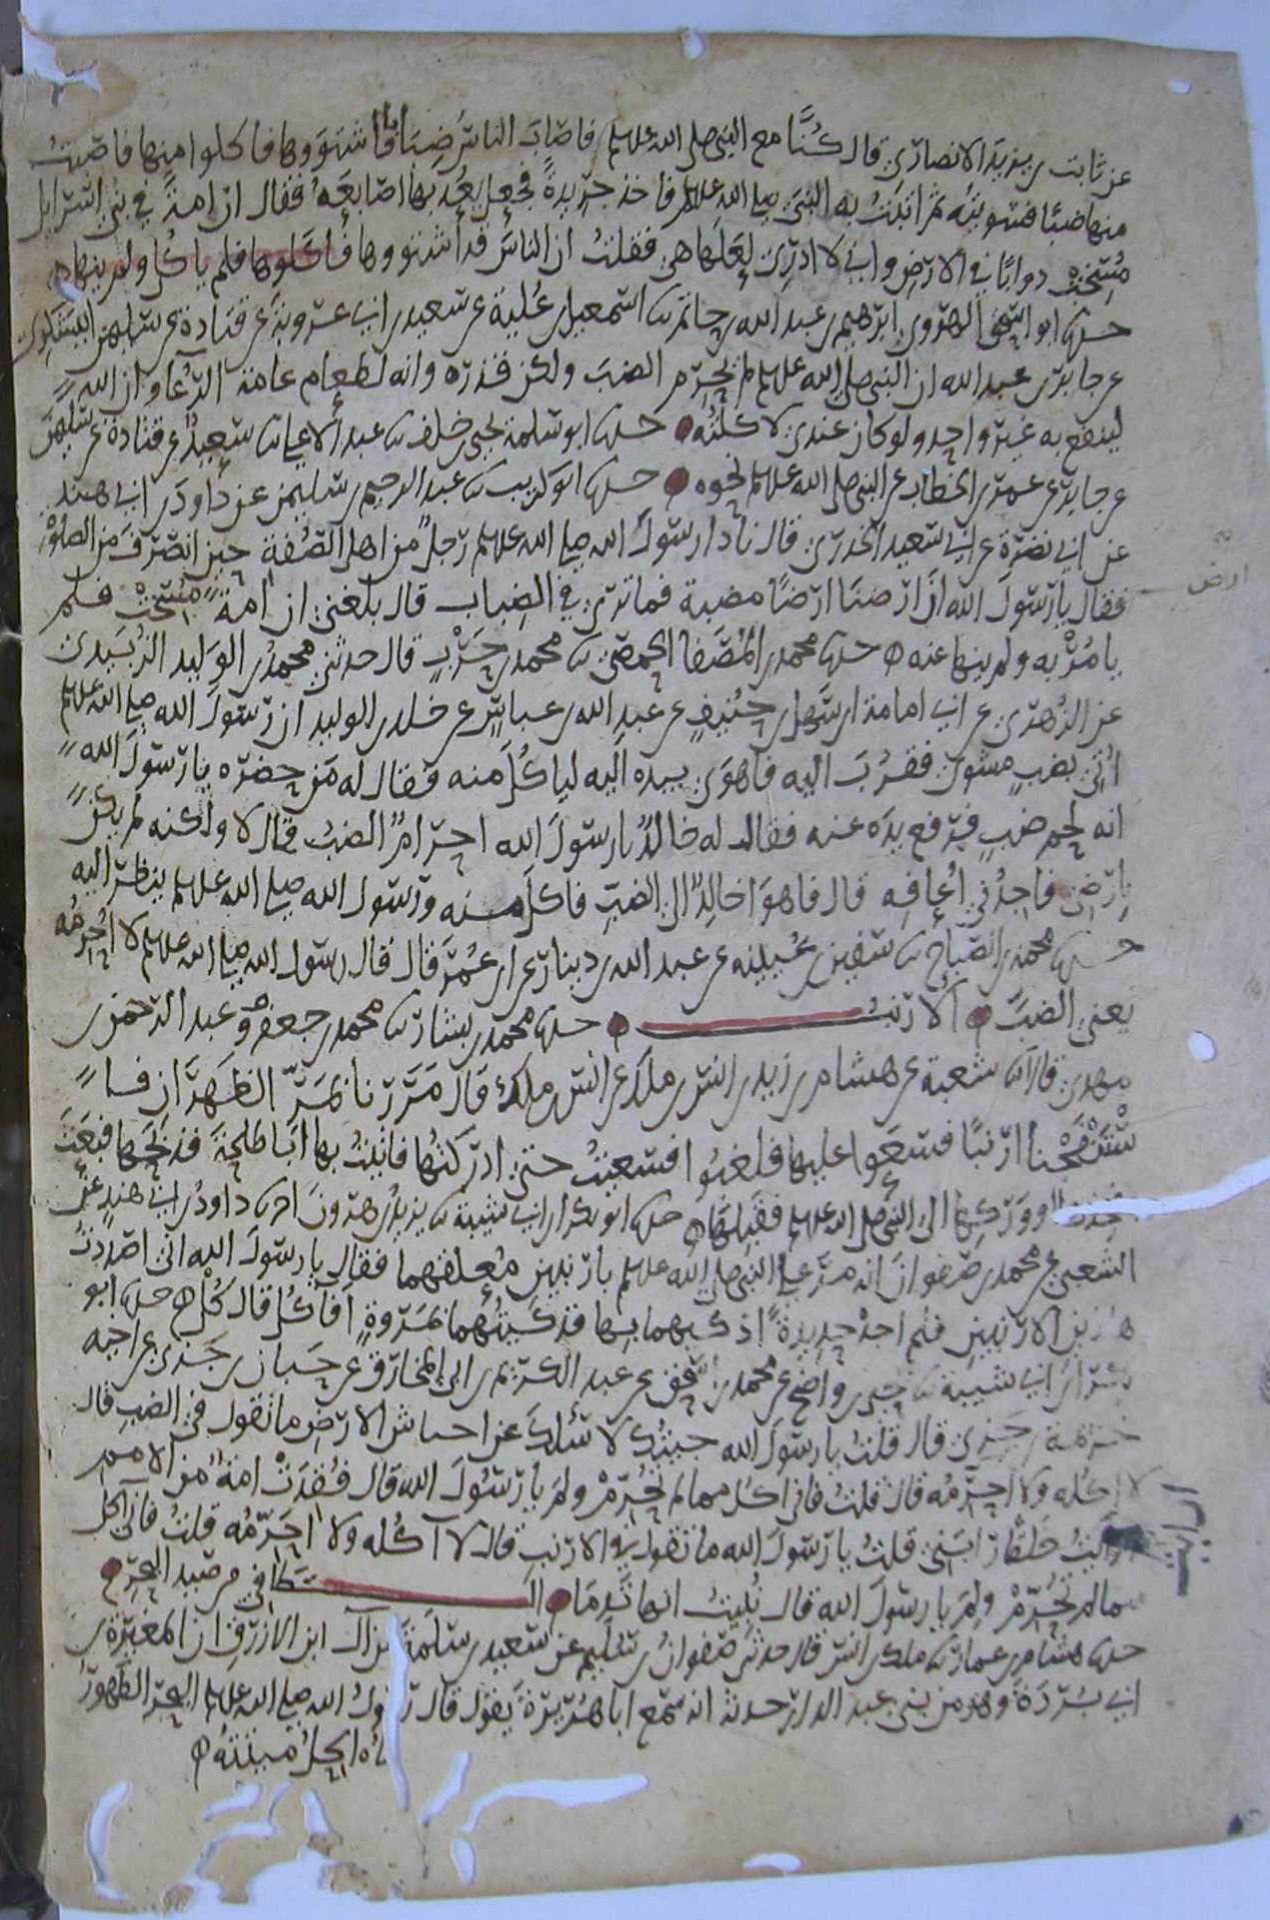 عن ثابت بن يزيد الانصاري قال كُنَّا مع النبي صلى الله عليه وسلم فاصَابَ الناسُ ضِبَابًا فاشتَوَوها فاكلوا منها فاصَبتُ
منها ضبًا فشويتُه ثم اتيتُ به النبيَ صلى الله عليه وسلم فاخذ جريدةً فجعل يعُد بها اصَابعَهُ فقال ان امةً في بني اسرايل
مُسِخَت دوابًا في الارض واني لا ادري لعَلها هي فقلت ان الناسَ قد اشتووها فاكلوها فلم ياكل ولم ينه
حدثنا ابو اسحق الهروي ابرهيم بن عبد الله بن حاتم ثنا اسمعيل بن عُلية عن سعيد بن ابي عروبة عن قتادة عن سليمن اليشكري
عن جابر بن عبد الله ان النبي صلى الله عليه وسلم لم يحرم الضبَ ولكن قذره وانه لطعام عامة الرعا وان الله
لينفع به غير واحد ولو كان عندي لاكلتُه حدثنا ابو سلمة يحيى بن خلف ثنا عبد الاعلى ثنا سعيدٌ عن قتادة عن سليمن
عن جابر عن عمر بن الخطاب عن النبي صلى الله عليه وسلم نحوه حدثنا ابو كريب ثنا عبد الرحيم بن سليمن عن داود بن ابي هند
عن ابي نضرة عن ابي سعيد الخدري قال نادا رسولَ الله صلى الله عليه وسلم رجلٌ من اهل الصُفة حين انصَرَفَ من الصلوة
فقال يا رسولَ الله ان ارضنا ارضًا مضبة فما ترى في الضِباب قال بلغني ان امةً مُسِخَت فلم
يامُرْ به ولم ينها عنه حدثنا محمد بن المُصَفا الحمصي ثنا محمد بن حَرْبٍ قال حدثني محمدُ بن الوليد الزُبَيدي
عن الزُهري عن ابي امامة بن سَهل بن حُنيفٍ عن عبد الله بن عباسٍ عن خلد بن الوليد ان رسولَ الله صلى الله عليه وسلم
اُتي بضبٍ مشويٍ فقرُبَ اليه فاهوَى بيده اليه لياكُلَ منه فقال له مَن حضره يا رسولَ الله
انه لحم ضبٍ فرفع يدَه عنه فقال له خالدٌ يا رسولَ الله احرامٌ الضبُ قال لا ولكنه لم يكن
بارضي فاجدُني اُعافه قال فاهوَا خالدٌ الى الضبِ فاكل منه ورسول الله صلى الله عليه وسلم ينظر اليه
حدثنا محمد بن الصَبّاح ثنا سفين بن عُيينه عن عبد الله بن دينار عن ابن عُمرَ قال قال رسول الله صلى الله عليه وسلم لا اُحرمُه
يعني الضبَّ الارنب حدثنا محمد بن بشار ثنا محمد بن جعفرٍ وعبد الرحمن بن
مهدي قالا ثنا شعبة عن هشام بن زيد بن انس بن ملك عن انس بن ملك قال مَرَرنا بمَرِّ الظَهرَانِ فا
سْتَنْفَجْنا ارنبًا فسَعَوا عليها فلغبُوا فسَعيتُ حتى ادركتُها فاتيتُ بها ابَا طلحةَ فذبحَها فبَعَثَ
بفخذها ووركها الى النبي صلى الله عليه وسلم فقَبِلَهَا حدثنا ابو بكر بن ابي شيبة ثنا يزيدُ بن هرُونَ انا داودُ بن ابي هندٍ عن
الشعبي عن محمد بن صَفوانَ انه مرَّ على النبي صلى الله عليه وسلم بارنبين مُعلقهما فقال يا رسولَ الله اني اصَّدتُ
هاذين الارنبين فلم اجدْ حديدةً اذكيهما بها فذكيتُهُما بمَروةٍ افاكُلُ قال كُلْ حدثنا ابو
بكر بن ابي شيبة ثنا يحيى بن واضح عن محمد بن اسحق عن عبد الكريم بن ابي المخارق عن حِبان بن جَزي عن اخيه
خزيمة بن جَزي قال قلتُ يا رسولَ الله جيتُك لاسئلكَ عن احناش الارضِ ما تقول في الضبِ قال
لا اكله ولا احرمُه قال قلتُ فاني اكل مما لم تُحرمْ ولمَ يا رسُولَ الله قال فُقِدَتْ امةٌ من الامم
ورايتُ خَلقًا رابَني قلتُ يا رسولَ الله ما تقول في الارنبِ قال لا آكُله ولا احَرّمُه قلتُ فاني آكل
مما لم تُحرّمْ ولمَ يا رسول الله قال نُبيتُ انها تَدمَا الطافي من صَيد البحر
حدثنا هشام بن عمار ثنا ملك بن انس قال حدثني صَفوانُ بن سُليم عن سعيد بن سلمةَ من آل ابن الازرق ان المغيرة بن
ابي بُردَةَ وهو من بني عبد الدار حدثه انه سمع ابا هُرَيرةَ يَقول قال رسولُ الله صلى الله عليه وسلم البحر الطَهورُ
ماؤه الحِلُ ميتتُه
ارض